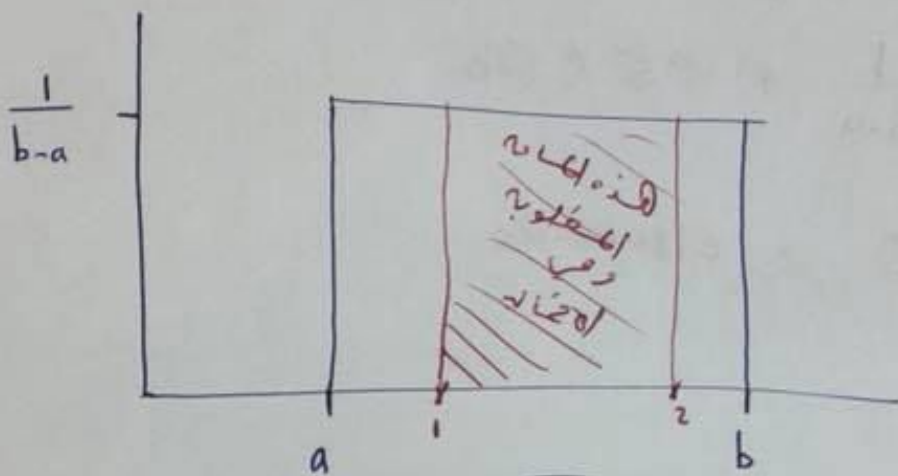 1
b-a
هذه المساحة
المطلوبة
وهي
احتمال
1
2
a
b